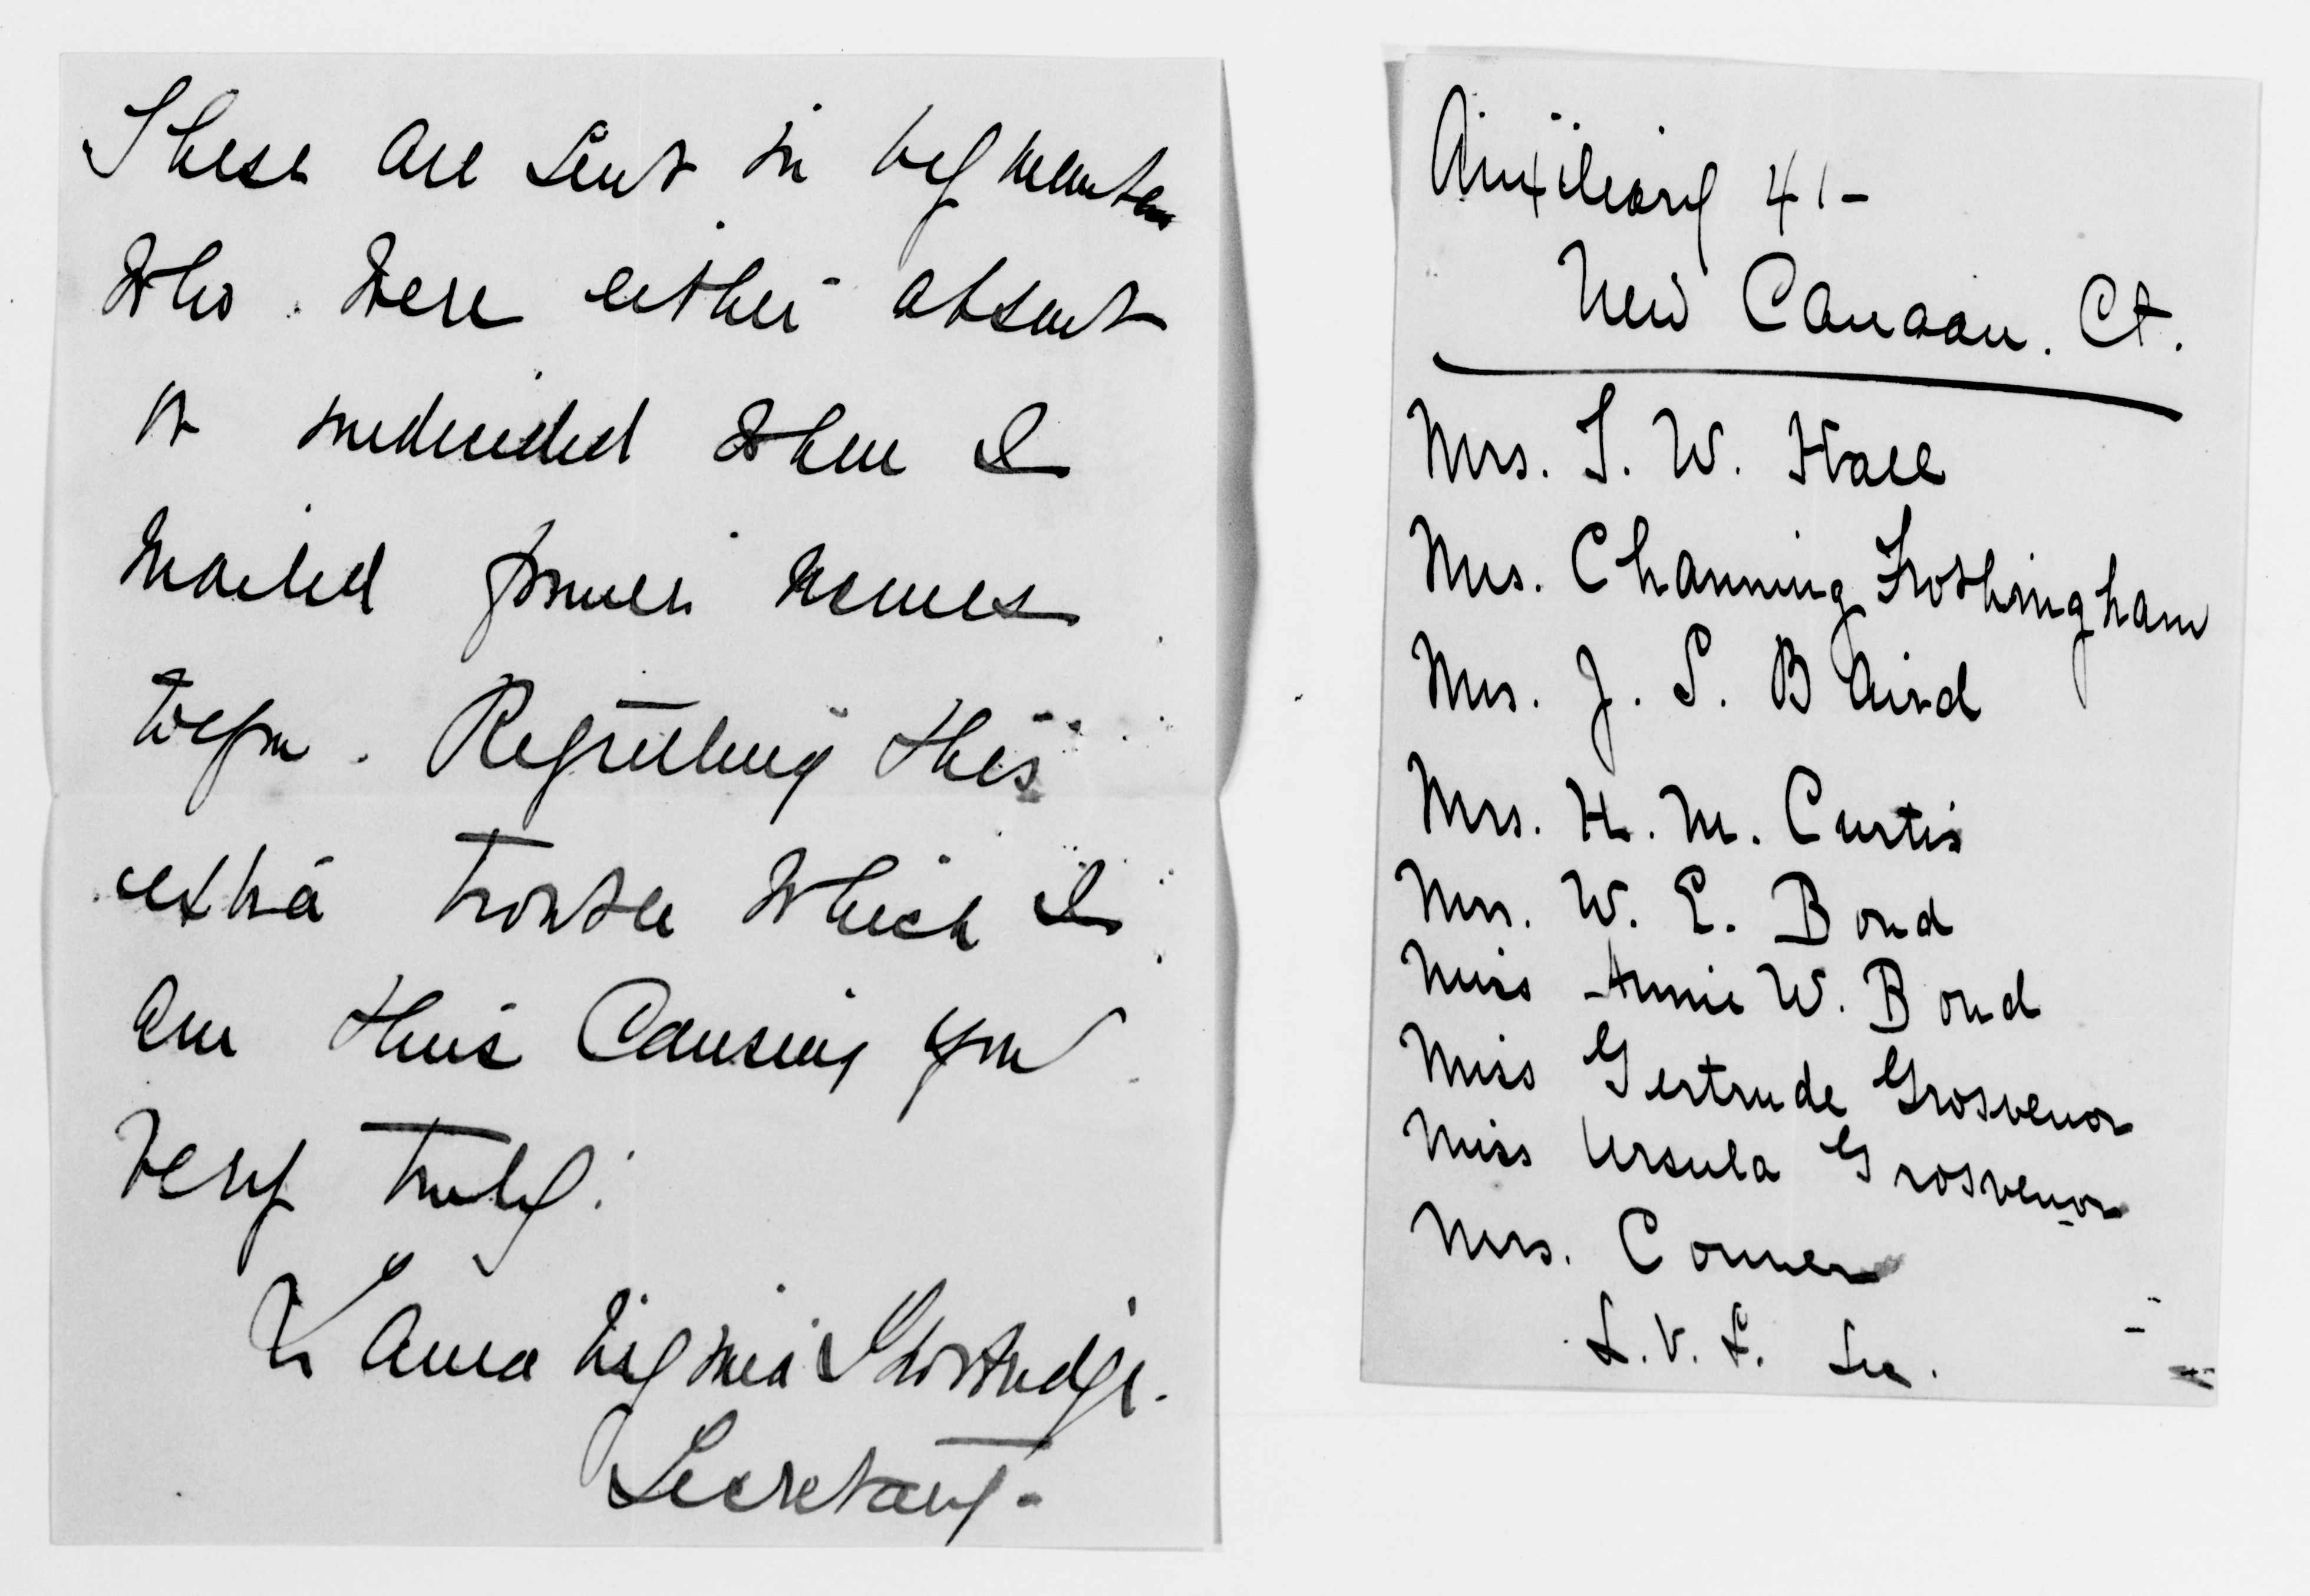 These are sent in by members
who were either absent
or undecided when I
mailed former names
to you. Regretting this
extra trouble which I
am thus causing you
Very truly.
Laura Virginia Shortridge.
Secretary.
Auxiliary 41-
New Canaan. Ct.
Mrs. T. W. Hall
Mrs. Channing Frothingham
Mrs. J. S. Baird
Mrs. H. M. Curtis
Mrs. W. E. Bond
Miss Annie W. Bond
Miss Gertrude Grosvenor
Miss Ursula Grosvenor
Mrs. Conner
L. V. S. Sec.